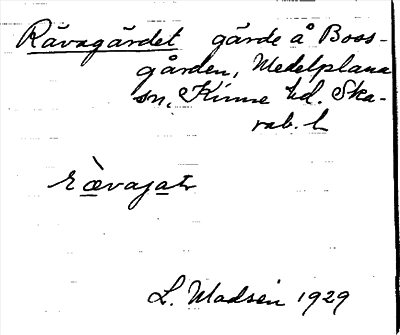 Rävagärdet gärde å Boss-
gården, Medelplana
sn, Kinne hd. Ska-
rab. l.
L. Madsén 1929